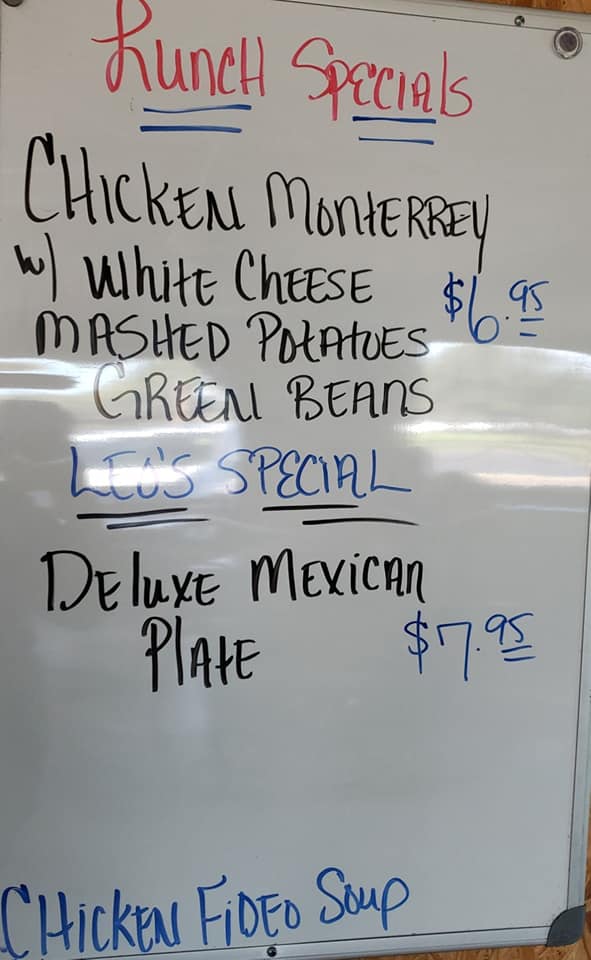 Lunch Specials
CHICKEN MONTERREY
w/ White CHEESE $6.95
MASHED POTATOES
GREEN BEANS
LEO'S SPECIAL
DEluxE MEXICAN
PlAtE $7.95
CHICKEN FiDEO Soup